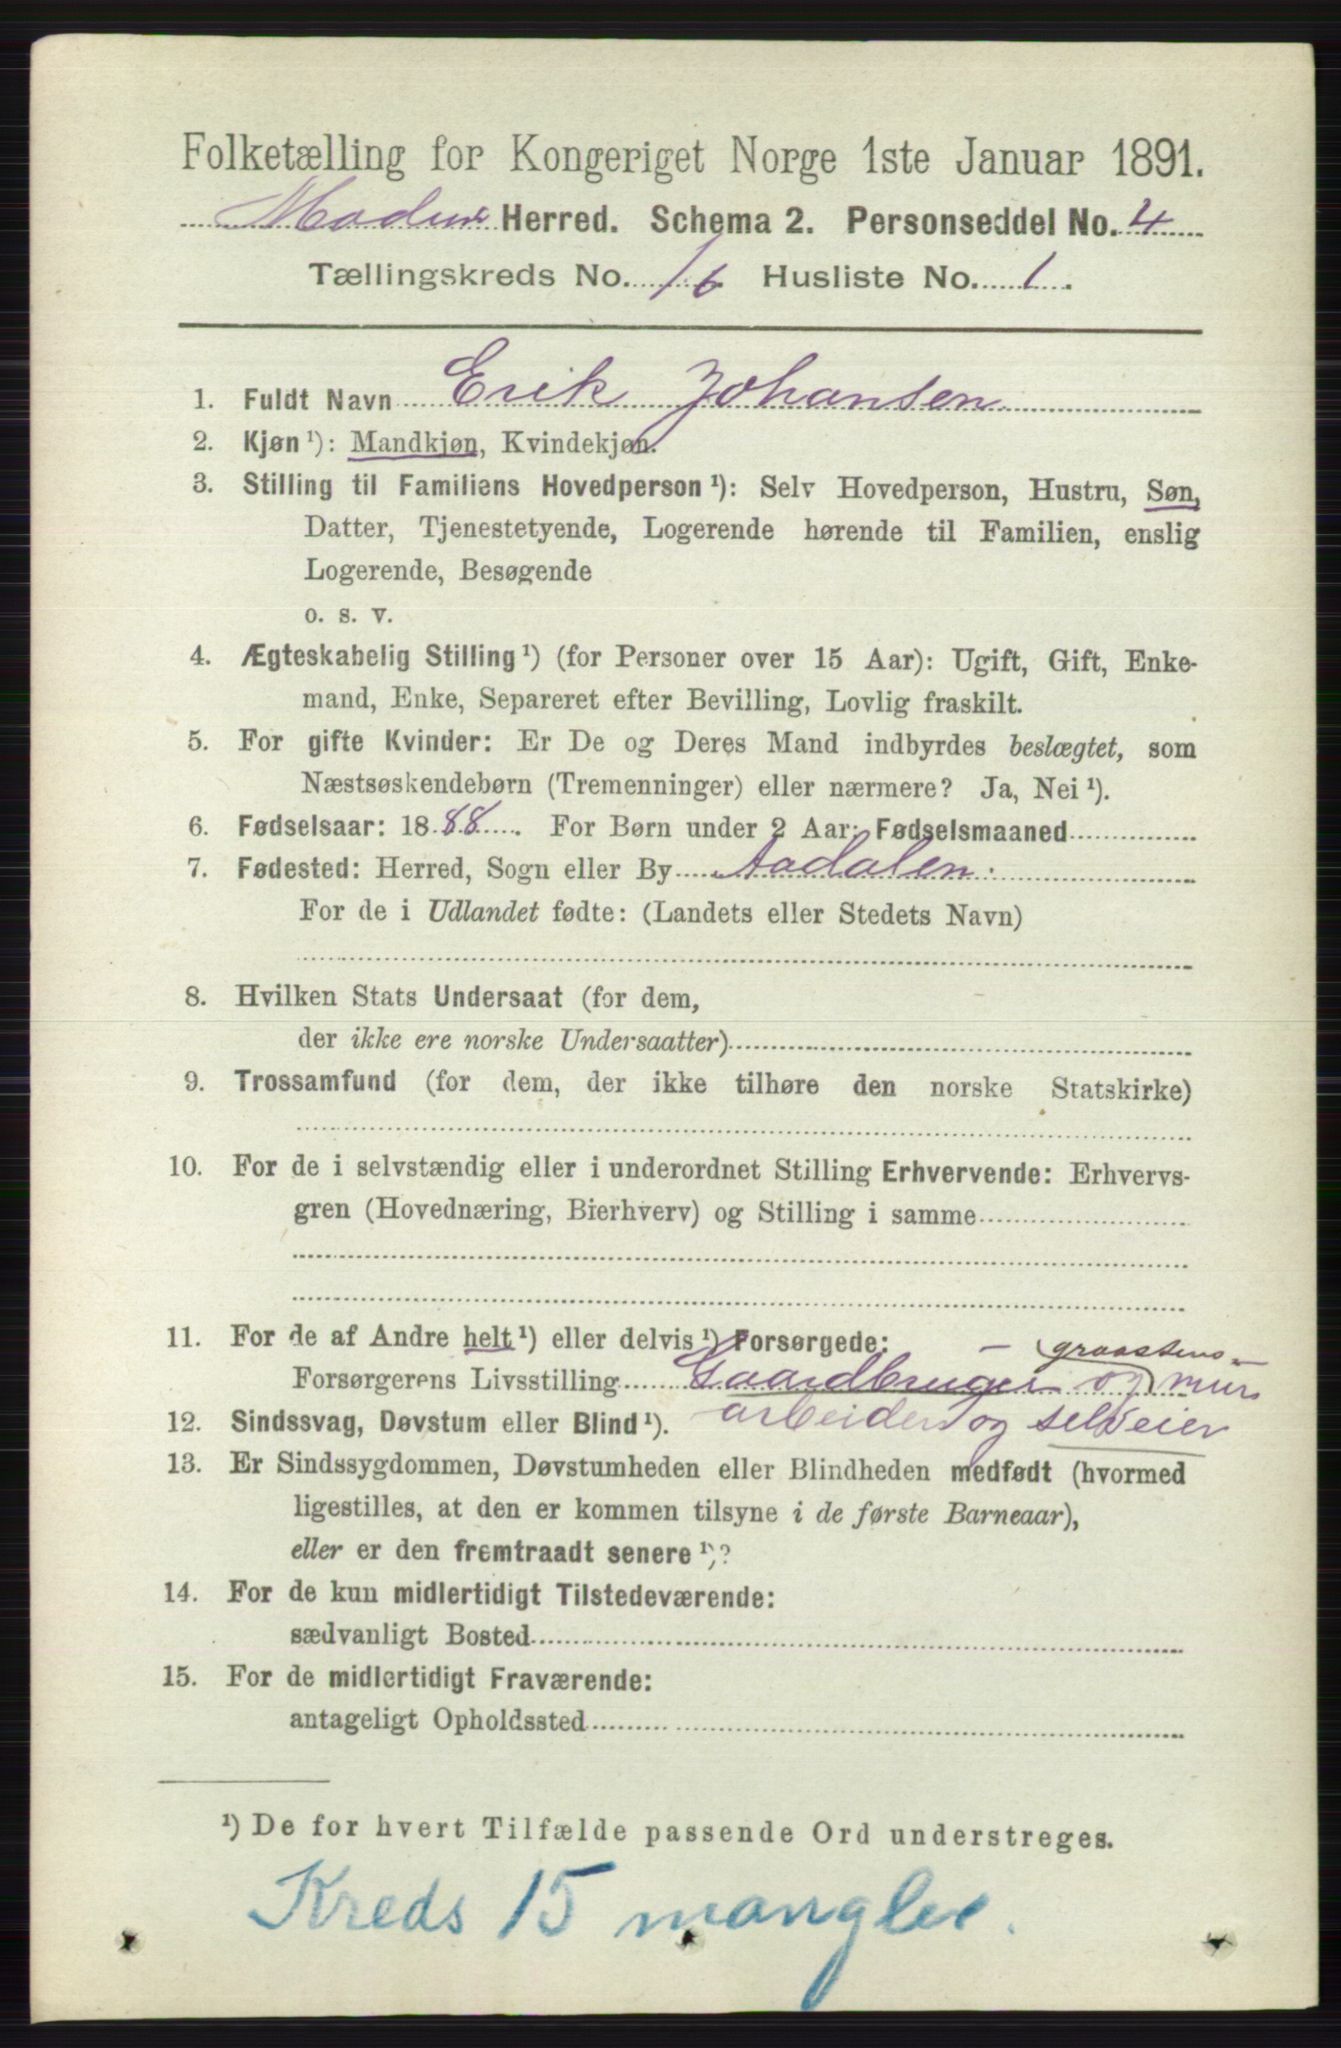 Folketælling for Kongeriget Norge 1ste Januar 1891.
Modum Herred. Schema 2. Personseddel No. 4
Tællingskreds No. 16 Husliste No. 1.
1. Fuldt Navn Erik Johansen
2. Kjøn ¹): Mandkjøn, Kvindekjøn.
3. Stilling til Familiens Hovedperson ¹): Selv Hovedperson, Hustru, Søn,
Datter, Tjenestetyende, Logerende hørende til Familien, enslig
Logerende, Besøgende
o. s. v.
4. Ægteskabelig Stilling ¹) (for Personer over 15 Aar): Ugift, Gift, Enke-
mand, Enke, Separeret efter Bevilling, Lovlig fraskilt.
5. For gifte Kvinder: Er De og Deres Mand indbyrdes beslægtet, som
Næstsøskendebørn (Tremenninger) eller nærmere? Ja, Nei ¹).
6. Fødselsaar: 1888. For Børn under 2 Aar: Fødselsmaaned
7. Fødested: Herred, Sogn eller By Aadalen.
For de i Udlandet fødte: (Landets eller Stedets Navn)
8. Hvilken Stats Undersaat (for dem,
der ikke ere norske Undersaatter)
9. Trossamfund (for dem, der ikke tilhøre den norske Statskirke)
10. For de i selvstændig eller i underordnet Stilling Erhvervende: Erhvervs-
gren (Hovednæring, Bierhverv) og Stilling i samme
11. For de af Andre helt ¹) eller delvis ¹) Forsørgede:
graastens-
Forsørgerens Livsstilling Gaardbruger og mur
arbeider og selveier
12. Sindssvag, Døvstum eller Blind ¹).
13. Er Sindssygdommen, Døvstumheden eller Blindheden medfødt (hvormed
ligestilles, at den er kommen tilsyne i de første Barneaar),
eller er den fremtraadt senere ¹)?
14. For de kun midlertidigt Tilstedeværende:
sædvanligt Bosted
15. For de midlertidigt Fraværende:
antageligt Opholdssted
¹) De for hvert Tilfælde passende Ord understreges.
Kreds 15 mangler.